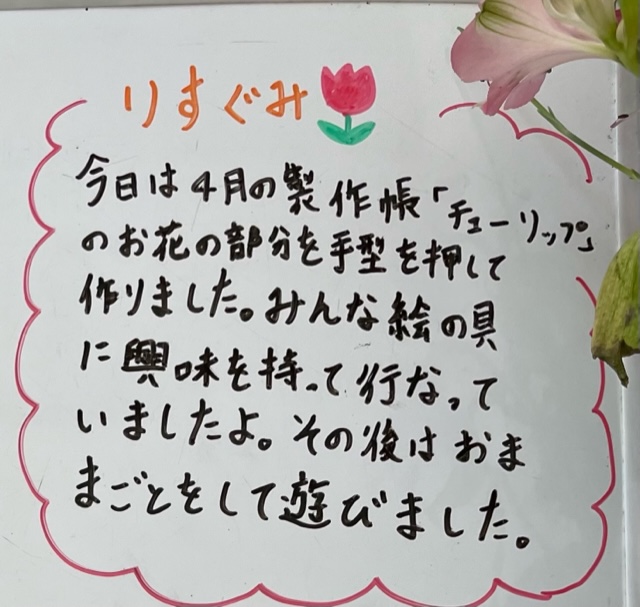 りすぐみ
今日は4月の製作帳「チューリップ」
のお花の部分を手型を押して
作りました。みんな絵の具
に興味を持って行なって
いましたよ。その後はおま
まごとをして遊びました。